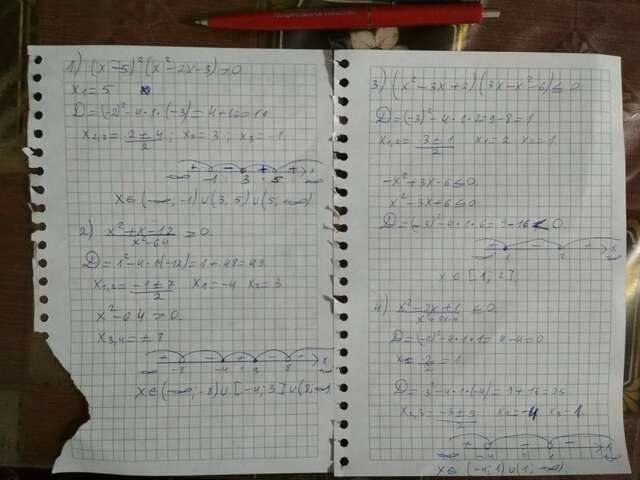 1) (x-5)² (x²-2x-3)>0
x₁=5
D=(-2)²-4·1·(-3)=4+12=16
x₂,₃=2±4/2; x₂=3; x₃=-1
+ - + + x
-∞ -1 3 5 ∞
x∈(-∞;-1)∪(3;5)∪(5;∞)
2) x²+x-12/x²-64 ≥0
D=1²-4·1(-12)=1+48=49
x₁,₂=-1±7/2 x₁=-4 x₂=3
x²-64>0
x₃,₄=±8
+ - + - + x
-∞ -8 -4 3 8
x∈(-∞;-8)∪[-4;3]∪(8;+∞
3) (x²-3x+2)(3x-x²-6)≤0
D=(-3)²-4·1·2=9-8=1
x₁,₂=3±1/2 x₁=2 x₂=1
-x²+3x-6≤0
x²-3x+6≤0
D=(-3)²-4·1·6=9-16<0
+ - + x
-∞ 1 2
x∈[1;2]
4) x²-2x+1/x²+3x-4 ≤0
D=(-2)²-4·1·1=4-4=0
x=2/2=1
D=3²-4·1·(-4)=9+16=25
x₂,₃=-3±5/2 x₂=-4 x₃=1
-∞ -4 1 x
x∈(-4;1)∪(1;∞)